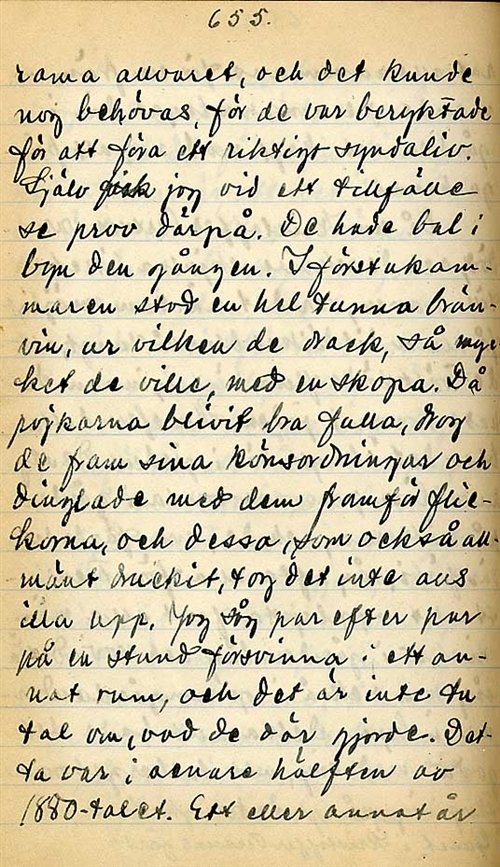 655.
rama allvaret, och det kunde
nog behövas, för de var beryktade
för att föra ett riktigt syndaliv.
Själv fick jag vid ett tillfälle
se prov därpå. De hade bal i
byn den gången. I förstukam-
maren stod en hel tunna brän-
vin, ur vilken de drack, så myc-
ket de ville, med en skopa. Då
pojkarna blivit bra fulla, drog
de fram sina könsordningar och
dinglade med dem framför flic-
korna, och dessa, som också all-
mänt druckit, tog det inte aus
illa upp. Jag såg par efter par
på en stund försvinna i ett an-
nat rum, och det är inte tu
tal om, vad de där gjorde. Det-
ta var i senare hälften av
1880-talet. Ett eller annat år